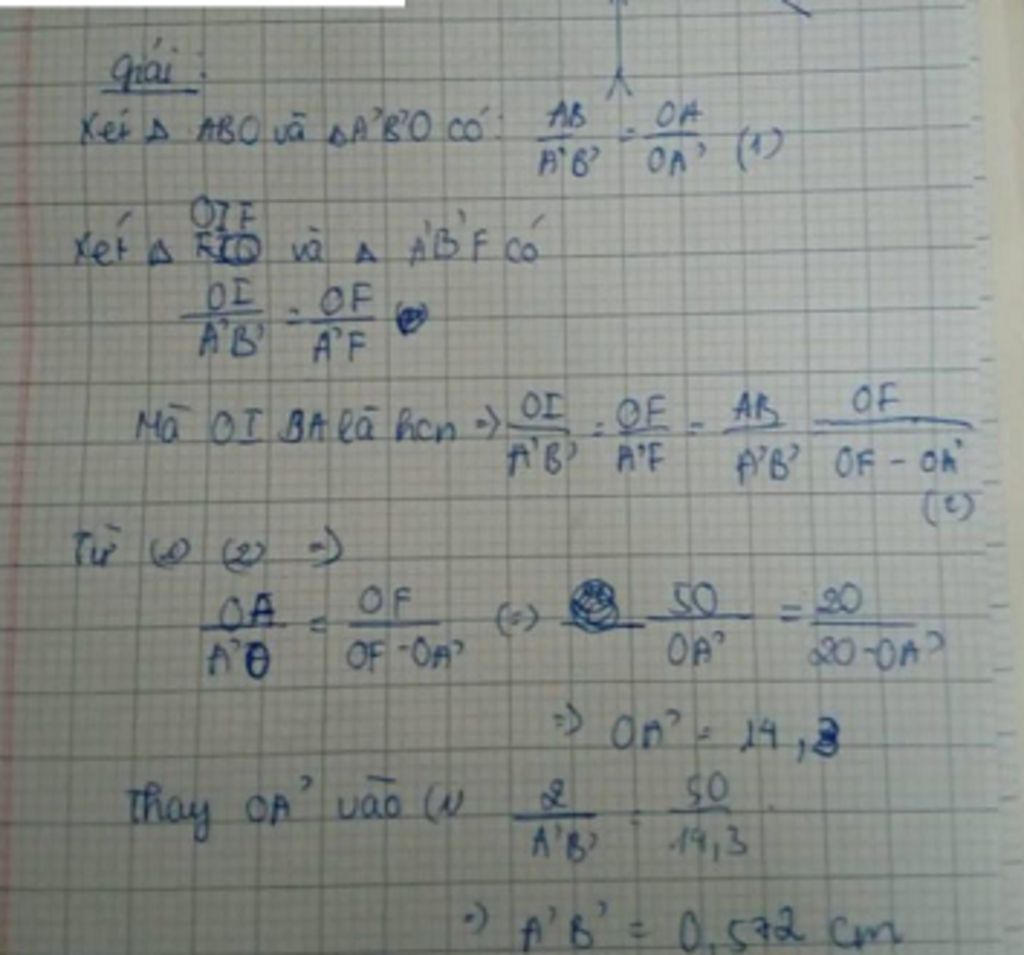 Giải :
Xét Δ ABO và ΔA'B'O có: AB/A'B' = OA/OA' (1)
Xét Δ OIF và Δ A'B'F có
OI/A'B' = OF/A'F
Mà OIBA là hcn => OI/A'B' = OF/A'F = AB/A'B' OF/OF - OA' (2)
Từ (1) (2) =>
OA/A'O = OF/OF - OA' (=) 50/OA' = 20/20-OA'
=> OA' = 14,3
Thay OA' vào (1) 2/A'B' = 50/14,3
=> A'B' = 0,572 cm